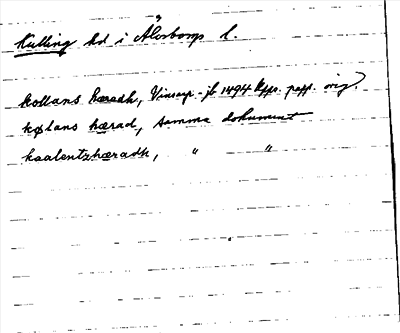 Kulling hd i Älvsborgs l.
kollans hæradh, Vinsarp-jb 1494 kfps. papp. orig.
kølans hærad, samma dokument
kaalentzhæradh, " "